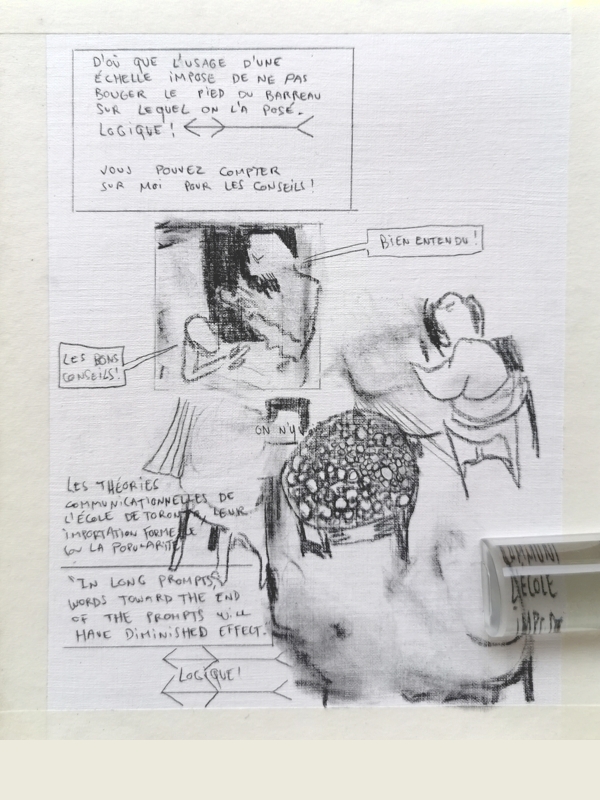 D'OÙ QUE L'USAGE D'UNE
ÉCHELLE IMPOSE DE NE PAS
BOUGER LE PIED DU BARREAU
SUR LEQUEL ON L'A POSÉ.
LOGIQUE!
VOUS POUVEZ COMPTER
SUR MOI POUR LES CONSEILS!
BIEN ENTENDU!
LES BONS
CONSEILS!
ON N'Y
LES THÉORIES
COMMUNICATIONNELLES DE
L'ÉCOLE DE TORONTO LEUR
IMPORTATION FORMELLE
(OU LA POPULARITÉ
"IN LONG PROMPTS,
WORDS TOWARD THE END
OF THE PROMPTS WILL
HAVE DIMINISHED EFFECT.
LOGIQUE!
COMMUNI
L'ÉCOLE